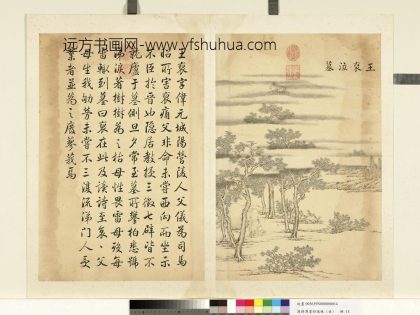 远方书画网- www.yfshuhua.com
王裒泣墓
王裒字偉元城陽營陵人父儀為司馬
昭所害裒痛父非命未嘗西向而坐示
不臣於晉也隱居教授三徵七辟皆不
就廬于墓側旦夕常至墓所攀柏悲號
涕淚著樹樹為之枯母性畏雷母歿每
雷輒到墓曰裒在此及讀詩至哀哀父
母生我劬勞未嘗不三復流涕門人受
業者並為之廢蓼莪焉